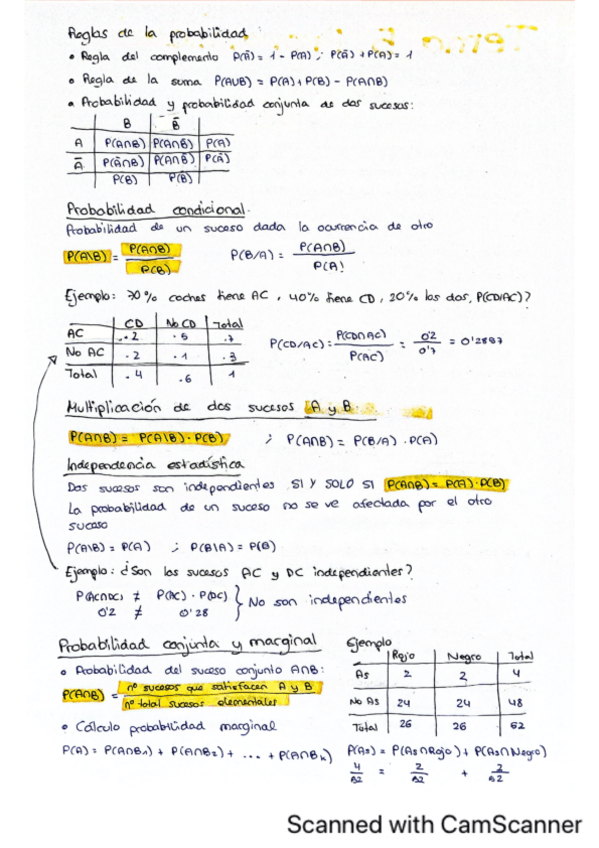 Reglas de la probabilidad
• Regla del complemento P(Ā) = 1 - P(A) ; P(Ā) + P(A) = 1
• Regla de la suma P(A∪B) = P(A) + P(B) - P(A∩B)
• Probabilidad y probabilidad conjunta de dos sucesos:
B B̄
A P(A∩B) P(A∩B̄) P(A)
Ā P(Ā∩B) P(Ā∩B̄) P(Ā)
P(B) P(B̄)
Probabilidad condicional.
Probabilidad de un suceso dada la ocurrencia de otro
P(A\B) = P(A∩B) / P(B) P(B/A) = P(A∩B) / P(A)
Ejemplo: 70% coches tiene AC, 40% tiene CD, 20% los dos, P(CD/AC)?
CD No CD Total
AC .2 .5 .7
No AC .2 .1 .3
Total .4 .6 1
P(CD/AC) = P(CD∩AC) / P(AC) = 0'2 / 0'7 = 0'2857
Multiplicación de dos sucesos A y B.
P(A∩B) = P(A\B) · P(B) ; P(A∩B) = P(B/A) · P(A)
Independencia estadística
Dos sucesos son independientes SI Y SOLO SI P(A∩B) = P(A) · P(B)
La probabilidad de un suceso no se ve afectada por el otro
suceso
P(A\B) = P(A) ; P(B\A) = P(B)
Ejemplo: ¿Son los sucesos AC y DC independientes?
P(AC∩DC) ≠ P(AC) · P(DC) } No son independientes
0'2 ≠ 0'28
Probabilidad conjunta y marginal
• Probabilidad del suceso conjunto A∩B:
P(A∩B) = nº sucesos que satisfacen A y B / nº total sucesos elementales
• Cálculo probabilidad marginal
P(A) = P(A∩B₁) + P(A∩B₂) + ... + P(A∩Bₖ)
Ejemplo
Rojo Negro Total
As 2 2 4
No As 24 24 48
Total 26 26 52
P(As) = P(As∩Rojo) + P(As∩Negro)
4/52 = 2/52 + 2/52
Scanned with CamScanner